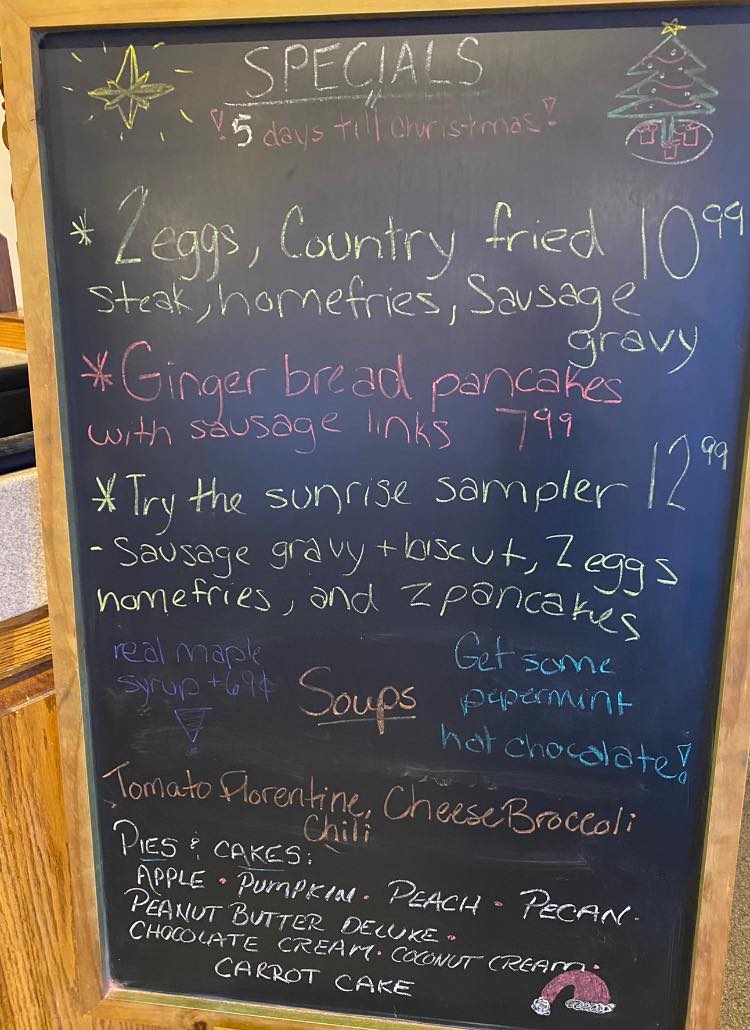 SPECIALS
! 5 days till Christmas!
* 2 eggs, Country fried 10 99
steak, homefries, Sausage
gravy
* Ginger bread pancakes
with sausage links 7 99
* Try the sunrise sampler 12 99
- Sausage gravy + biscut, 2 eggs
homefries, and 2 pancakes
real maple
syrup + 69¢
Soups
Get some
pepermint
hot chocolate!
Tomato Florentine, Cheese Broccoli
Chili
PIES & CAKES:
APPLE • PUMPKIN • PEACH • PECAN •
PEANUT BUTTER DELUXE •
CHOCOLATE CREAM • COCONUT CREAM •
CARROT CAKE